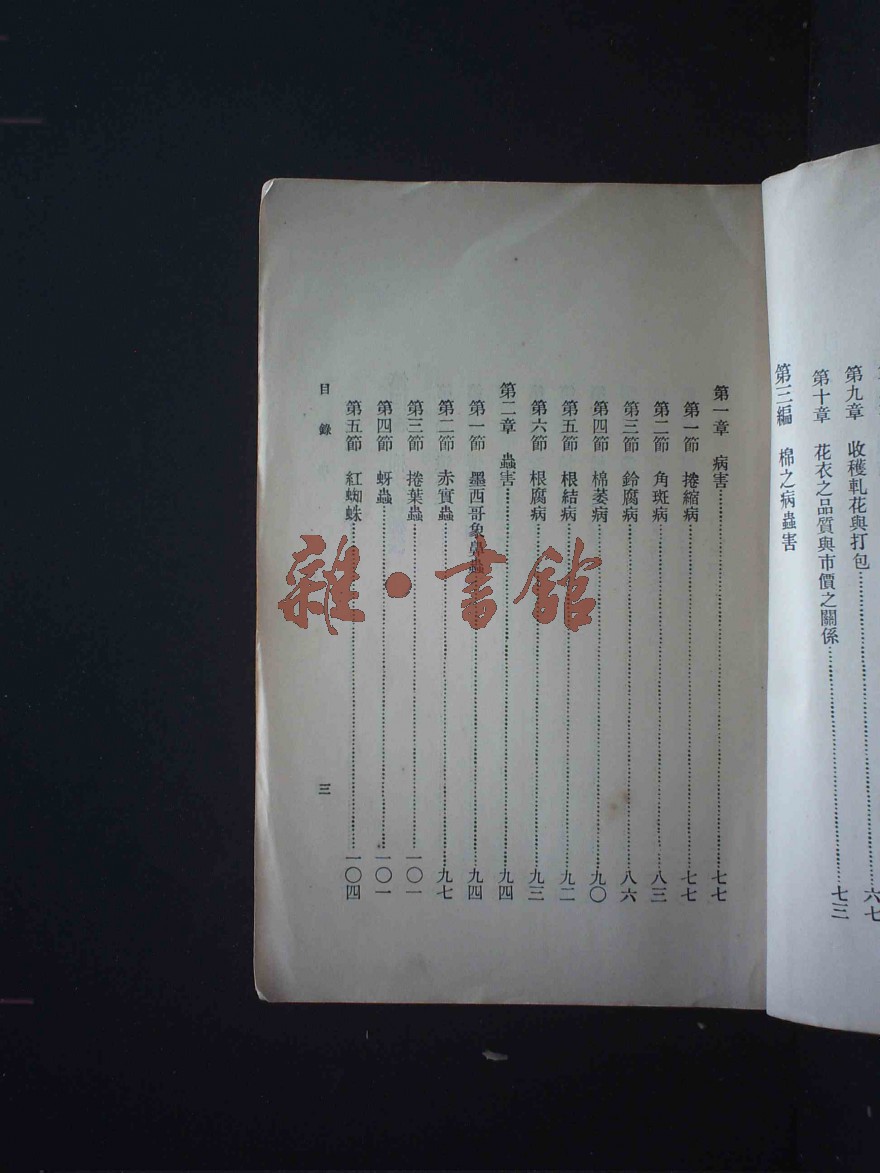 第九章 收穫軋花與打包 六七
第十章 花衣之品質與市價之關係 七三
第三編 棉之病蟲害
第一章 病害 七七
第一節 捲縮病 七七
第二節 角斑病 八三
第三節 鈴腐病 八六
第四節 棉萎病 九〇
第五節 根結病 九二
第六節 根腐病 九三
第二章 蟲害 九四
第一節 墨西哥象鼻蟲 九四
第二節 赤實蟲 九七
第三節 捲葉蟲 一〇一
第四節 蚜蟲 一〇一
第五節 紅蜘蛛 一〇四
目錄 三
雜·書館